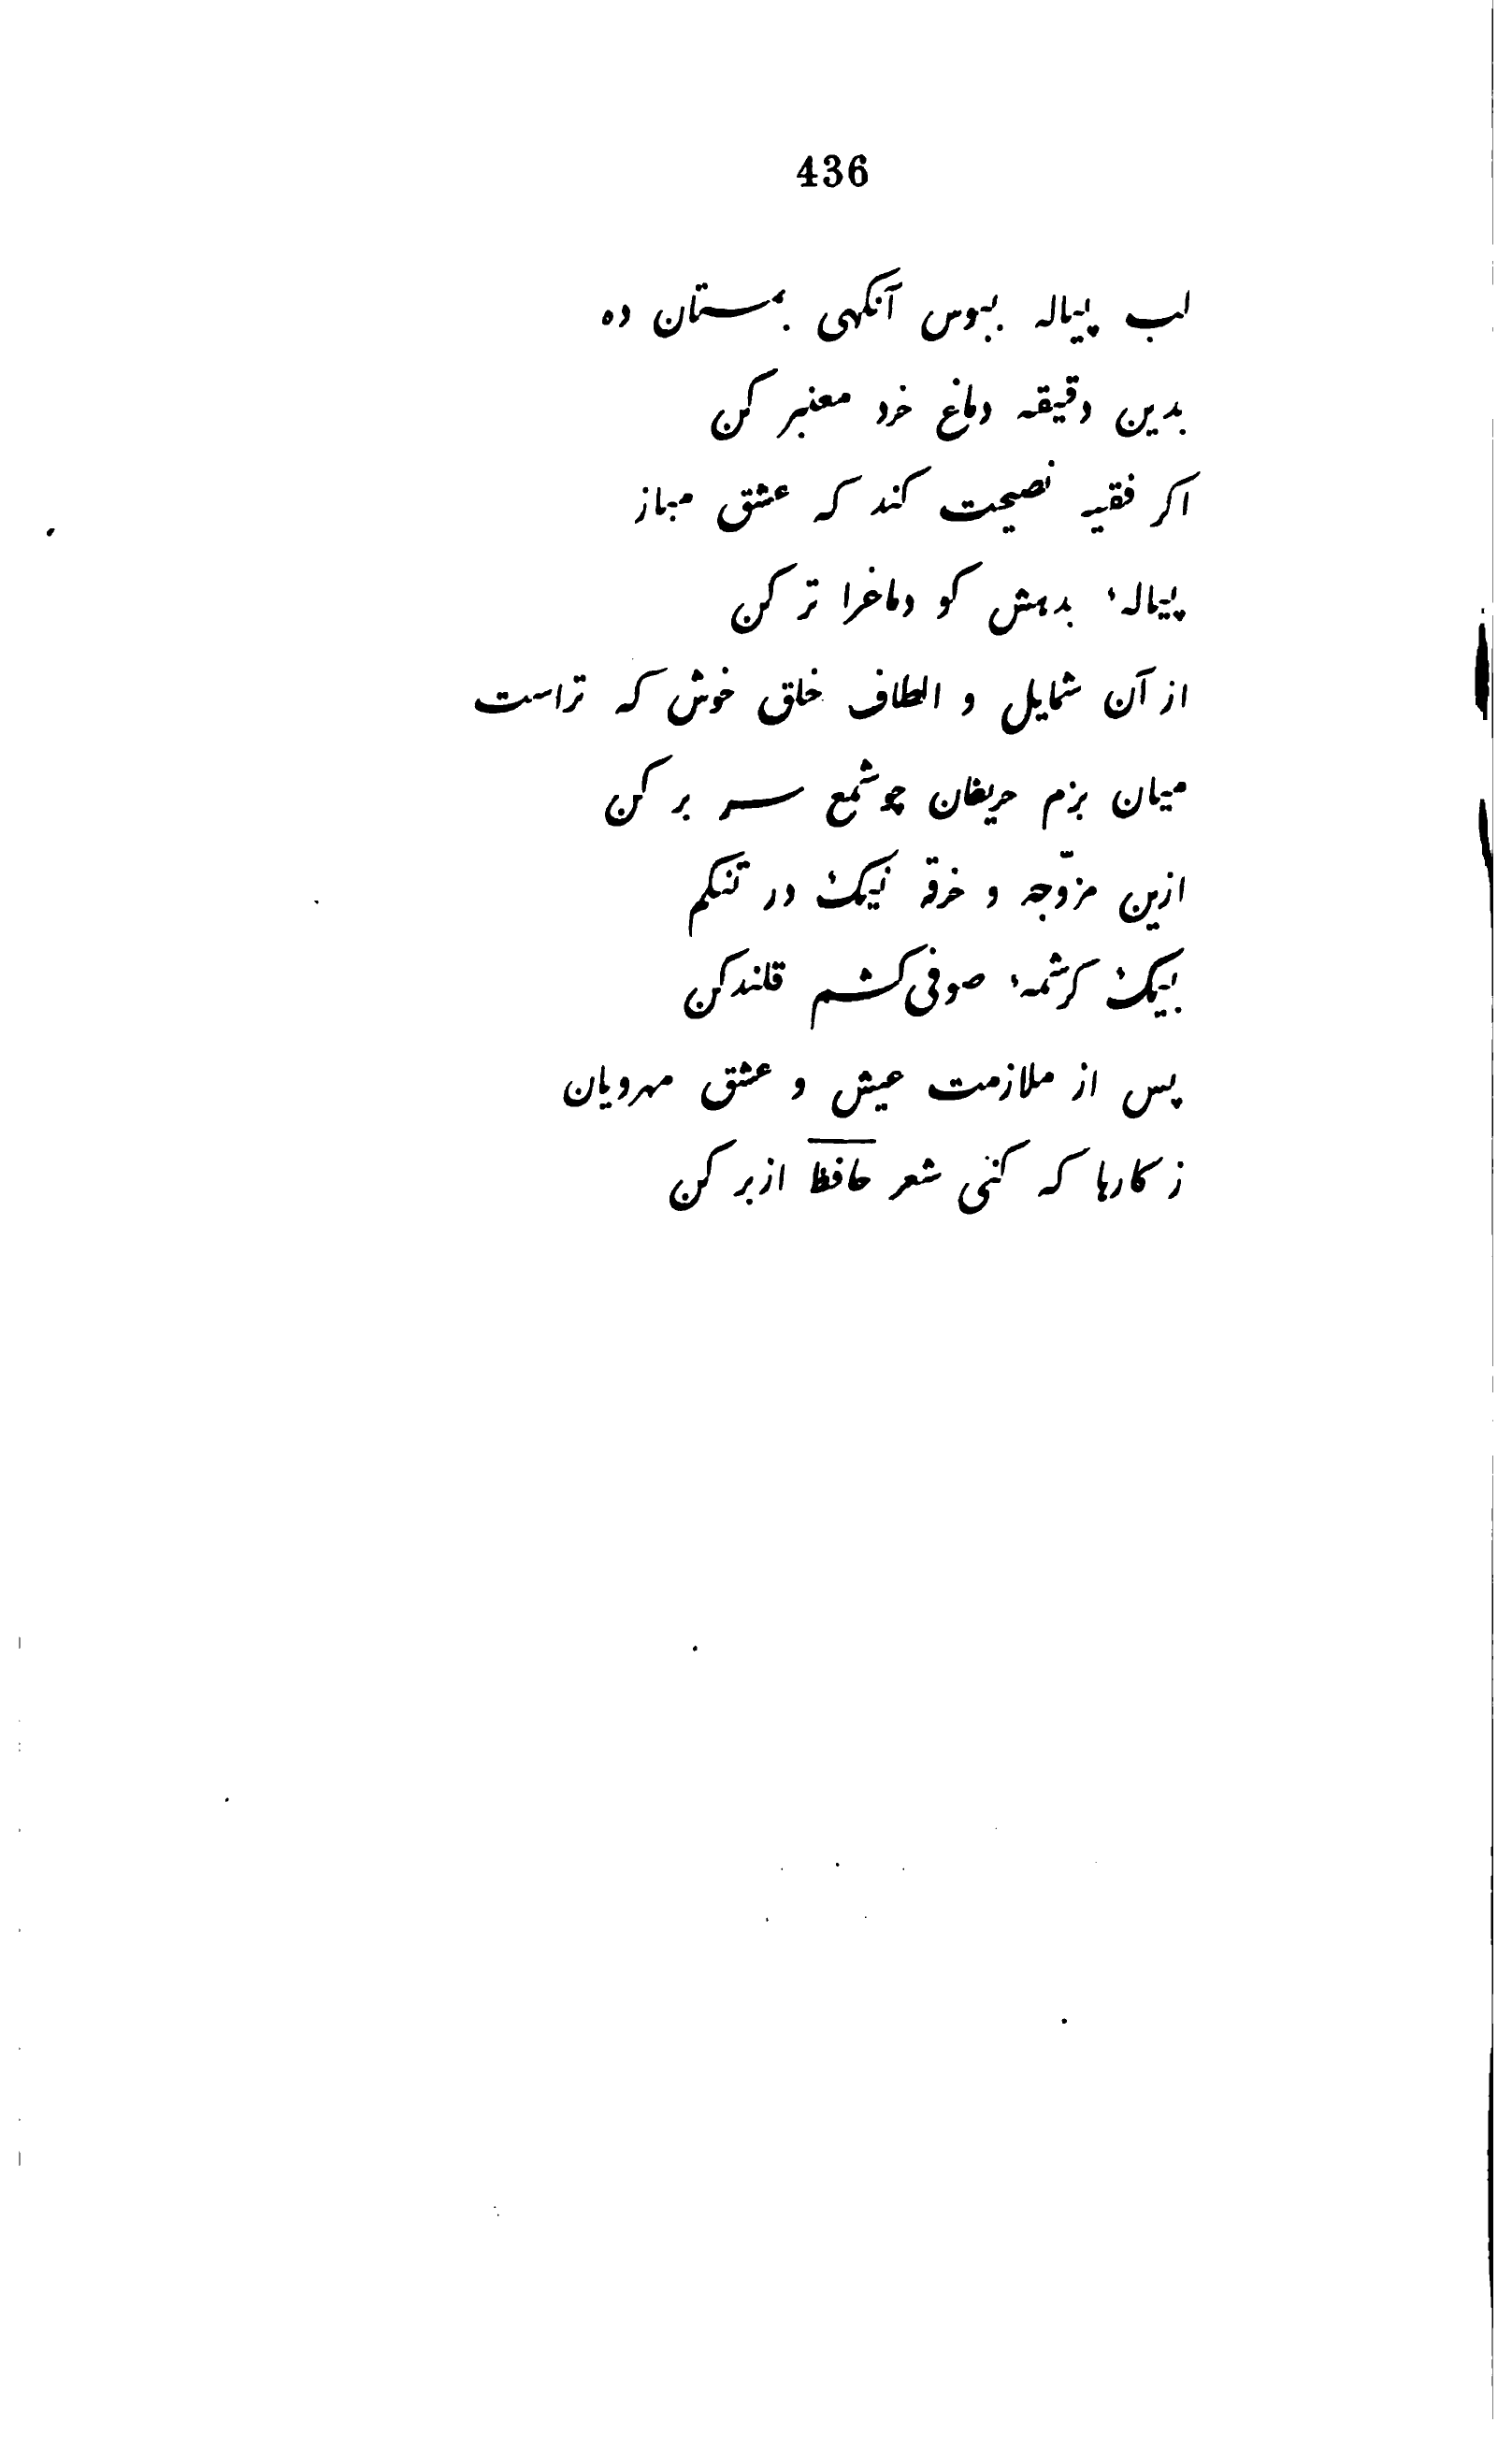 436
لب پیاله ببوس آنکهی بمستان ده
بدین دقیقه دماغ خرد معنبر کن
اکر فقیه نصیحت کند که عشق مباز
پیالهٔ بدهش کو دماغرا تر کن
از آن شمایل و الطاف خلق خوش که تراست
میان بزم حریفان چو شمع سر بر کن
ازین مزوّجه و خرقه نیک در تنکم
بیک کرشمهٔ صوفی کشم قلندر کن
پس از ملازمت عیش و عشق مهرویان
ز کارها که کنی شعر حافظ از بر کن